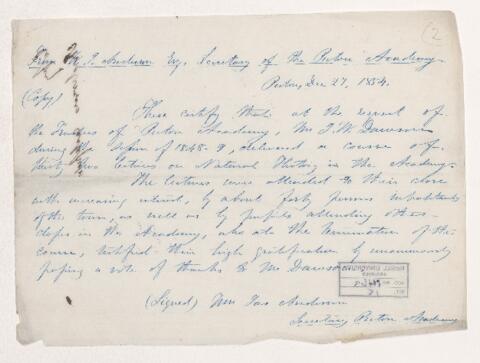 (2
From W. J. Anderson Esq, Secretary of the Pictou Academy.
Pictou, Dec 27, 1854.
(Copy)
These certify that at the request of
the Trustees of Pictou Academy, Mr J. W. Dawson
during the Winter of 1848-9, delivered a course of
twenty two lectures on Natural History in the Academy.
The lectures were attended to their close
with increasing interest, by about forty persons inhabitants
of the town, as well as by pupils attending other
classes in the Academy, who at the termination of the
course, testified their high gratification by unanimously
passing a vote of thanks to Mr Dawson
(Signed) Wm Jas Anderson
Secretary Pictou Academy